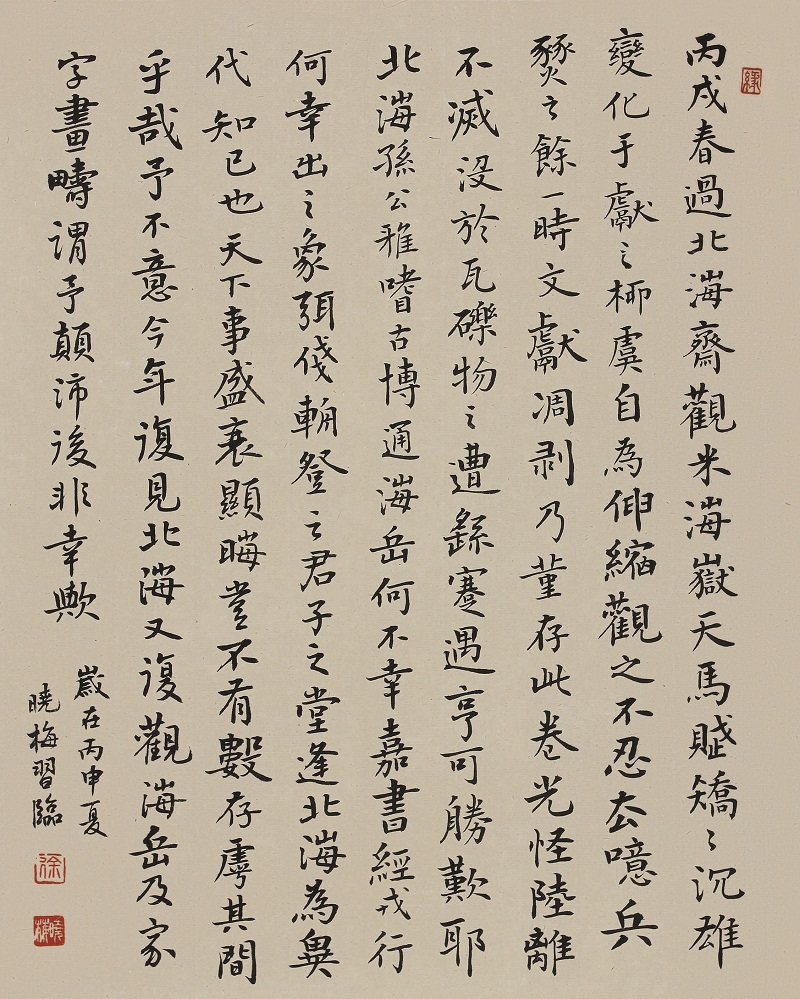 丙戌春過北海齋觀米海嶽天馬賦矯〻沉雄
變化于獻之柳虞自為伸縮觀之不忍去噫兵
燹之餘一時文獻凋剥乃堇存此卷光怪陸離
不滅没於瓦礫物之遭繇蹇遇亨可勝歎耶
北海孫公雅嗜古博通海岳何不幸嘉書經戎行
何幸出之象弭俴輈登之君子之堂逢北海為異
代知已也天下事盛衰顯晦豈不有數存虖其間
乎哉予不意今年復見北海又復觀海岳及家
字畫疇謂予顛沛後非幸歟
歲在丙申夏
曉梅習臨
徐
曉梅